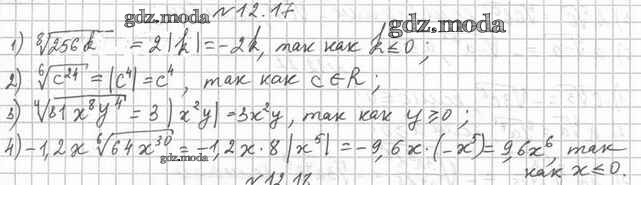 №12.17
gdz.moda
gdz.moda
1) ⁸√256k = 2|k| = -2k, так как k ≤ 0;
2) ⁶√c²⁴ = |c⁴| = c⁴, так как c ∈ R;
3) ⁴√81x⁸y⁴ = 3|x²y| = 3x²y, так как y ≥ 0;
4) -1,2x ⁶√64x³⁰ = -1,2x · 8|x⁵| = -9,6x · (-x⁵) = 9,6x⁶, так
как x ≤ 0.
gdz.moda
№12.18